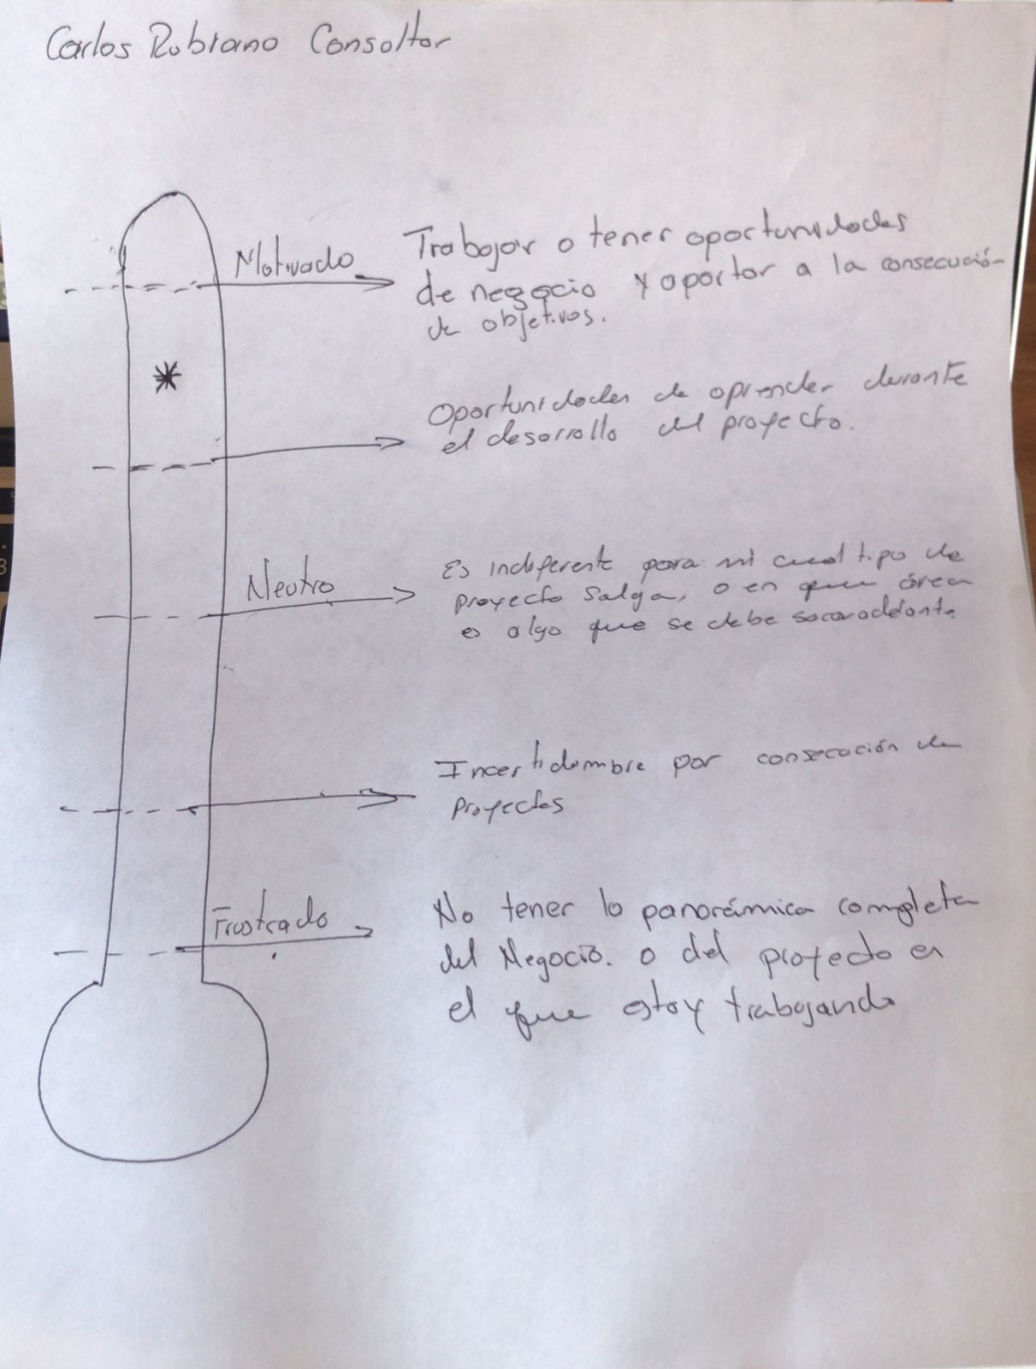 Carlos Rubiano Consultor
Motivado
Trabajar o tener oportunidades
de negocio y aportar a la consecución
de objetivos.
Oportunidades de aprender durante
el desarrollo del proyecto.
Neutro
Es indiferente para mi cual tipo de
proyecto salga, o en que área
es algo que se debe sacar adelante
Incertidumbre por consecución de
Proyectos
Frustrado
No tener la panorámica completa
del Negocio. o del proyecto en
el que estoy trabajando